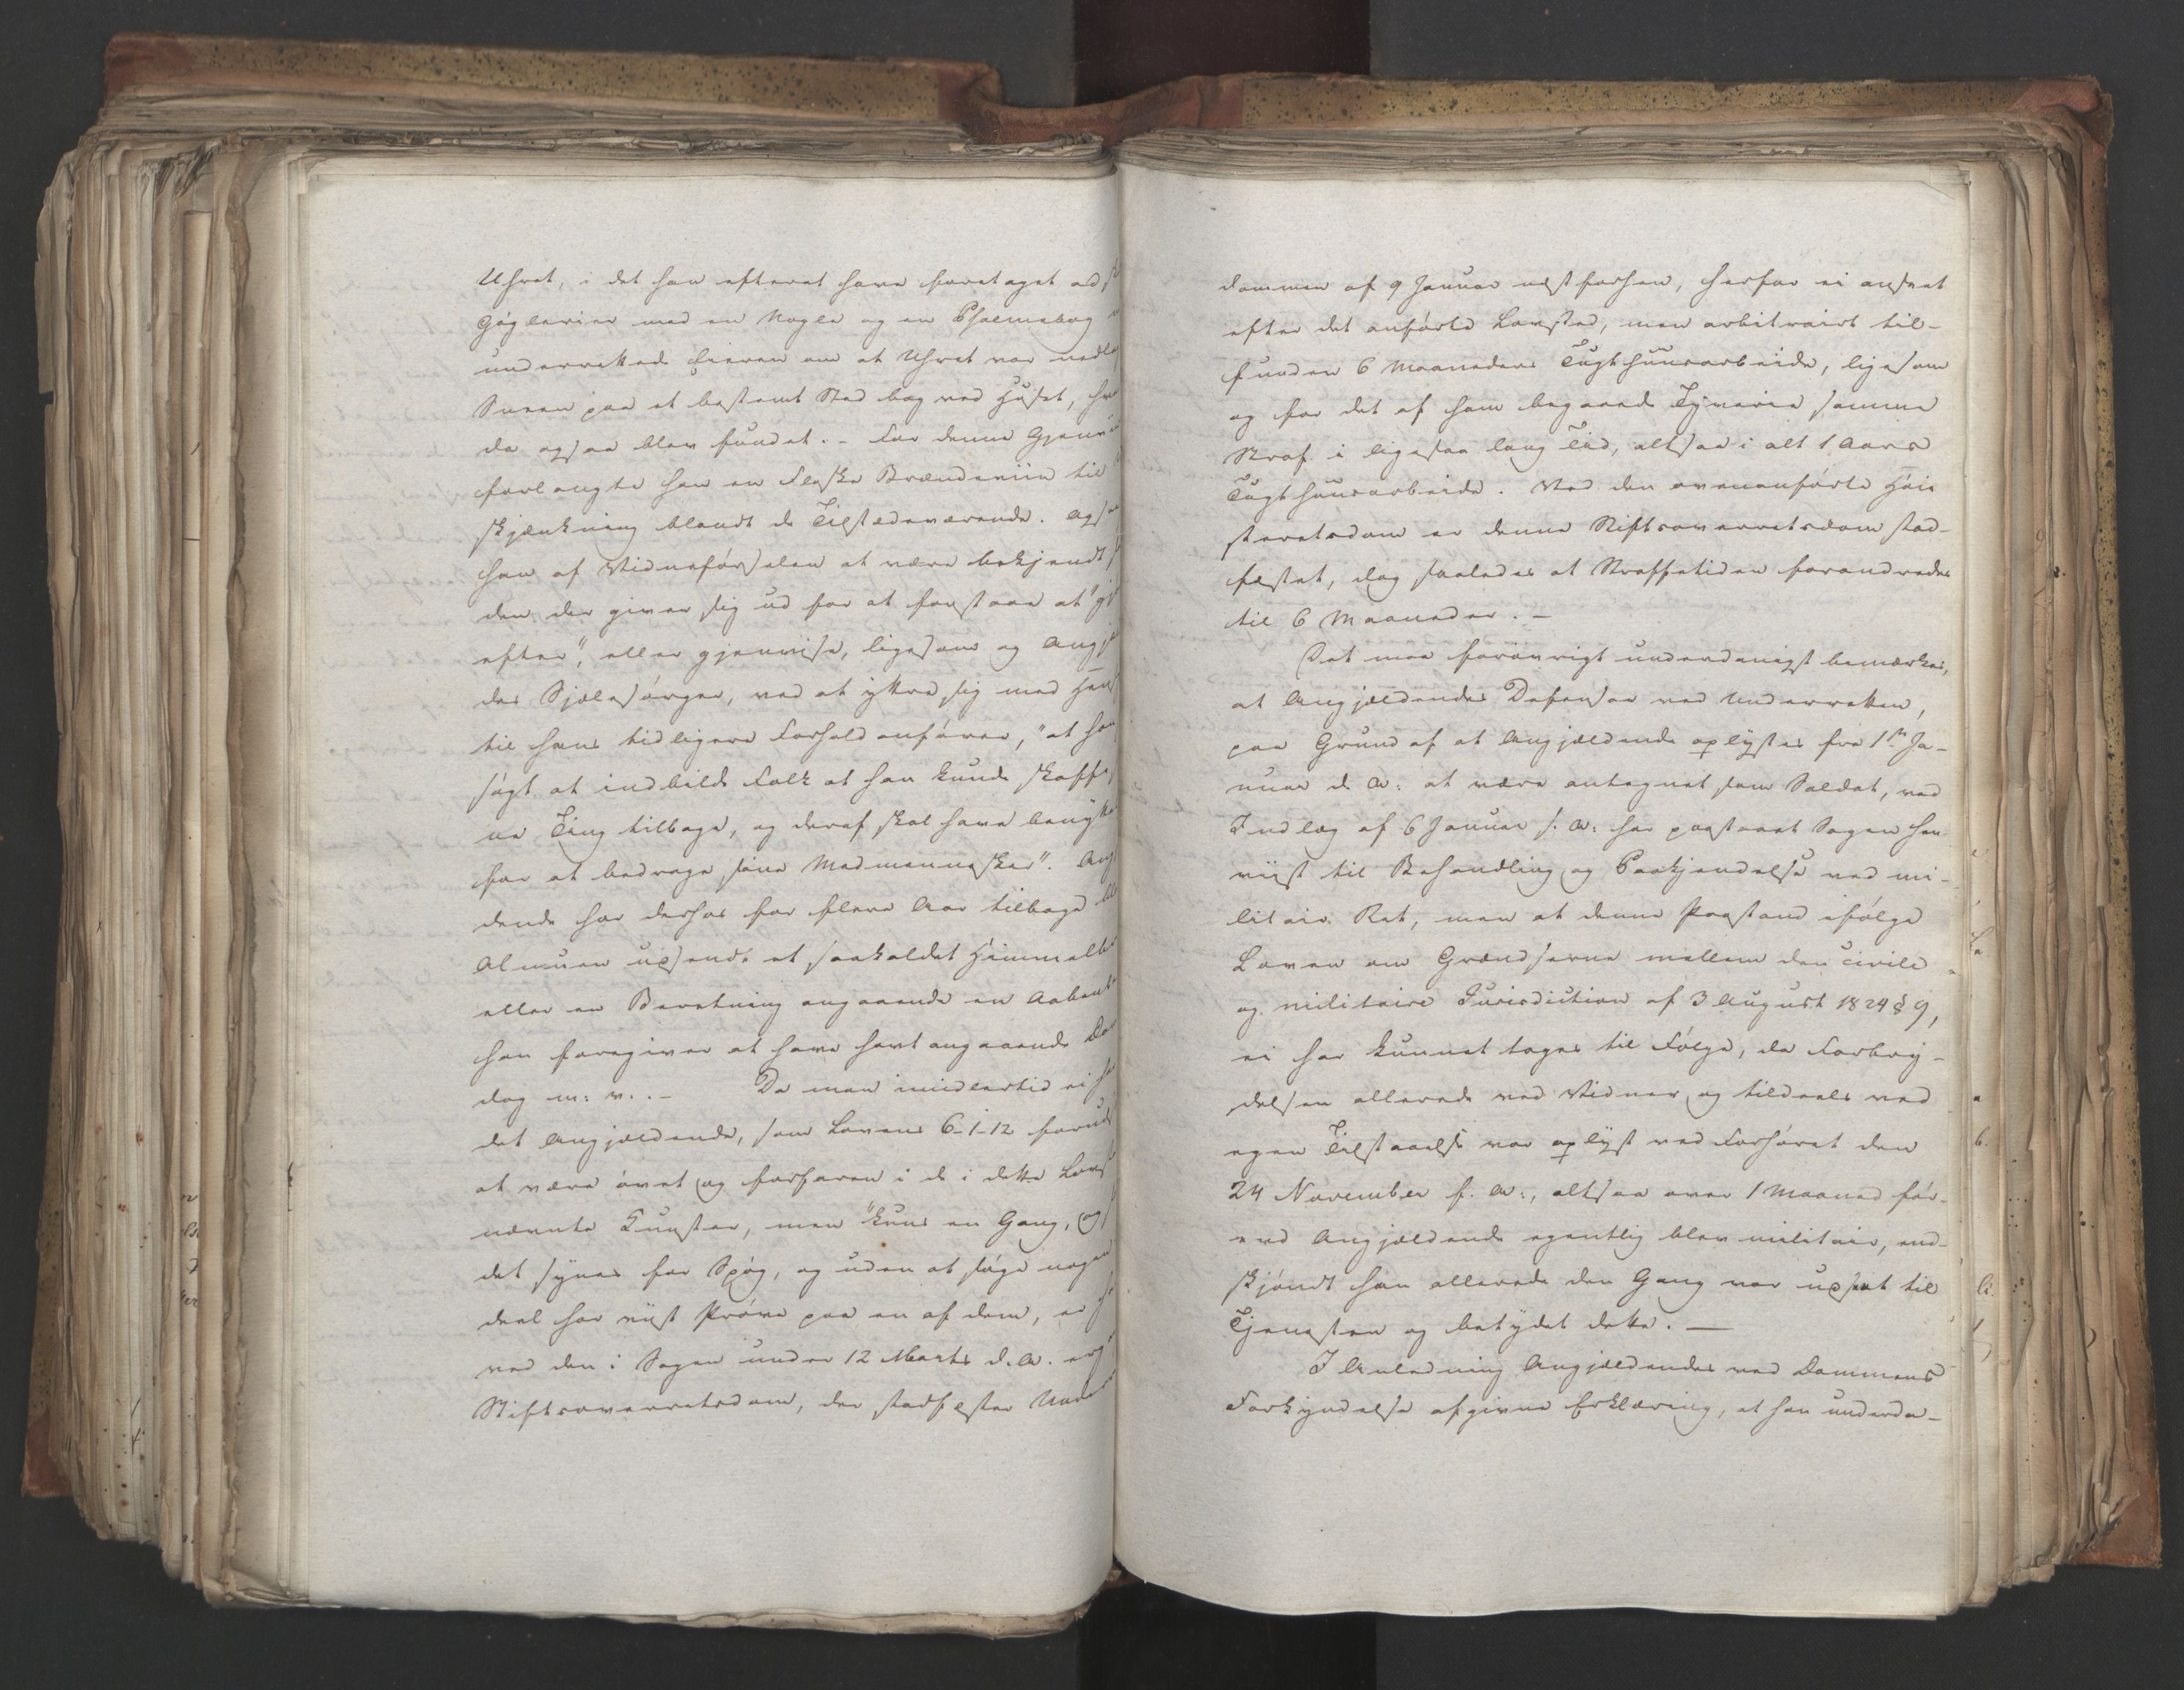 Uhret, i det han efterat have foretaget ad
Gøglerier med en Nøgle og en Psalmebog
underrettede Eieren om at Uhret var nedl
Sneen paa et bestemt Sted bag ved Huset, hv
da ogsaa blev fundet. - For denne Gjenvi
forlangte han en Flaske Brændeviin til
skjænkning blandt de Tilstedeværende. Ogsaa
han af Vidneførselen at være bekjendt
den der giver sig ud for at forstaae at "gj
efter", eller gjenvise, ligesom og Angjæ
des Sjælesørger, ved at yttre sig med Hens
til hans tidligere Forhold anfører, "at han
søgt at indbilde Folk at han kunde skaffe
ne Ting tilbage, og deraf skal have benytte
for at bedrage sine Medmennesker". Ang
dende har derhos for flere Aar tilbage bl
Almuen udspredt et saakaldet Himmelbr
eller en Beretning angaaende en Aabenb
han foregiver at have havt angaaende Dom
dag m: v:. - Da man imidlertid ei ha
det Angjældende, som Lovens 6-1-12 foruds
at være øvet og forfaren i de i dette Lovst
nævnte Kunster, men "kuns en Gang, og
det synes for Spøg, og uden at søge nogen
deel har viist Prøve paa en af dem, er h
ved den i Sagen under 12 Marts d. A. erg
Stiftsoverretsdom, der stadfæster Under
dommen af 9 Januar næstforhen, herfor ei anseet
efter det anførte Lovsted, men arbitrairt til-
funden 6 Maaneders Tugthuusarbeide, ligesom
og for det af ham begaaede Tyverie samme
Straf i ligesaa lang Tid, altsaa i alt 1 Aars
Tugthuusarbeide. Ved den ovenanførte Høie
steretsdom er denne Stiftsoverretsdom stad-
fæstet, dog saaledes at Straffetiden forandredes
til 6 Maaneder. -
Det maa forøvrigt underdanigst bemærkes,
at Angjældendes Defensor ved Underretten,
paa Grund af at Angjældende oplystes fra 1ste Ja-
nuar d. A: at være antegnet som Soldat, ved
Indlæg af 6 Januar s. A: har paastaaet Sagen hen
viist til Behandling og Paakjendelse ved mi-
litair Ret, men at denne Paastand ifølge
Loven om Grændserne mellem den civile
og militaire Jurisdiction af 3 August 1824 § 9,
ei har kunnet tages til Følge, da Forbry-
delsen allerede ved Vidner og tildeels ved
egen Tilstaaelse var oplyst ved Forhøret den
24 November f. A:, altsaa over 1 Maaned før-
end Angjældende egentlig blev militair, end-
skjøndt han allerede den Gang var udseet til
Tjenesten og betydet dette. -
I Anledning Angjældendes ved Dommens
Forkyndelse afgivne Erklæring, at han underda-